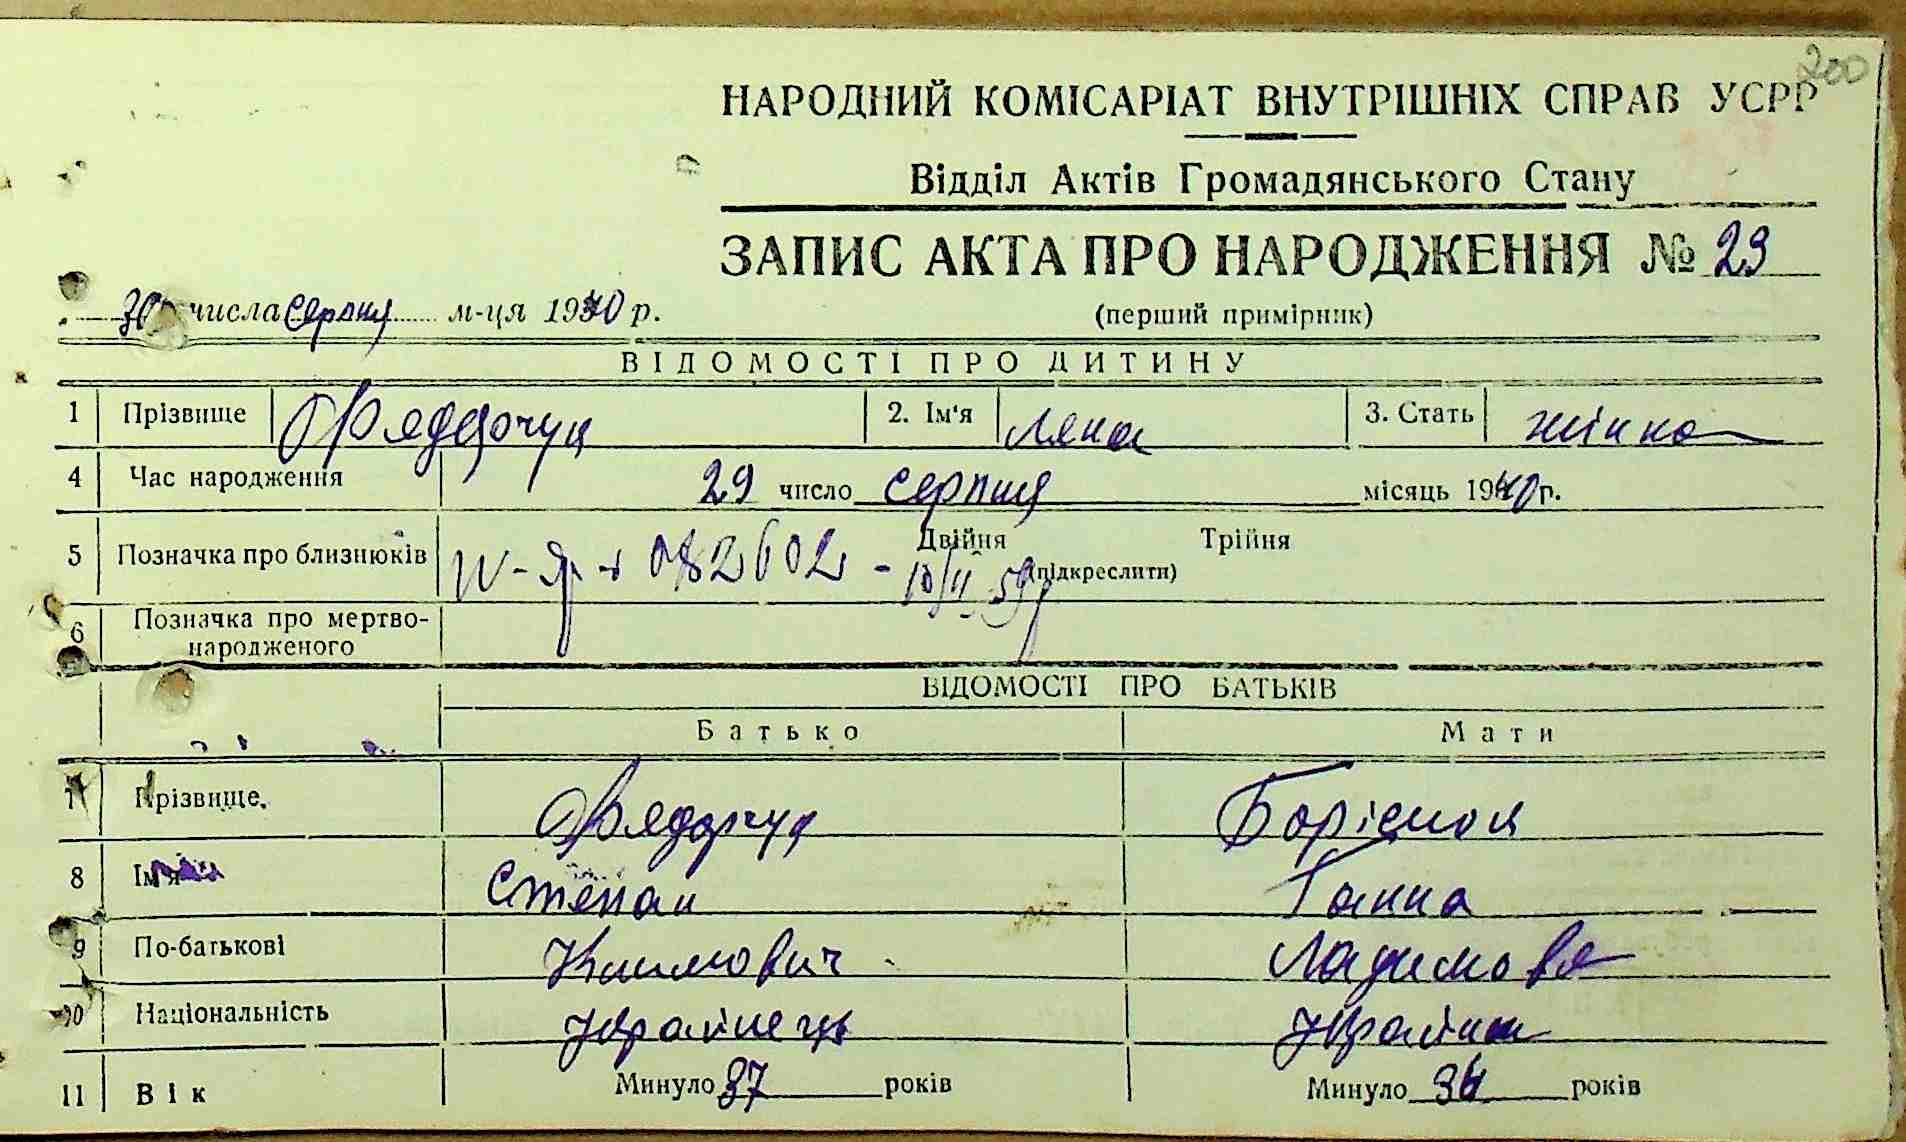 200
НАРОДНИЙ КОМІСАРІАТ ВНУТРІШНІХ СПРАВ УСРР
Відділ Актів Громадянського Стану
ЗАПИС АКТА ПРО НАРОДЖЕННЯ № 23
30 числа серпня м-ця 1940 р.
(перший примірник)
ВІДОМОСТІ ПРО ДИТИНУ
1 Прізвище Фядорчук 2. Ім'я Лена 3. Стать жінка
4 Час народження 29 число серпня місяць 1940 р.
5 Позначка про близнюків Двійня Трійня
082602 - (підкреслити)
6 Позначка про мертво-
народженого
ВІДОМОСТІ ПРО БАТЬКІВ
Батько Мати
7 Прізвище. Фядорчук
8 Ім'я Степан Ганна
9 По-батькові Климович
10 Національність Українець Українка
11 Вік Минуло 37 років Минуло 34 років